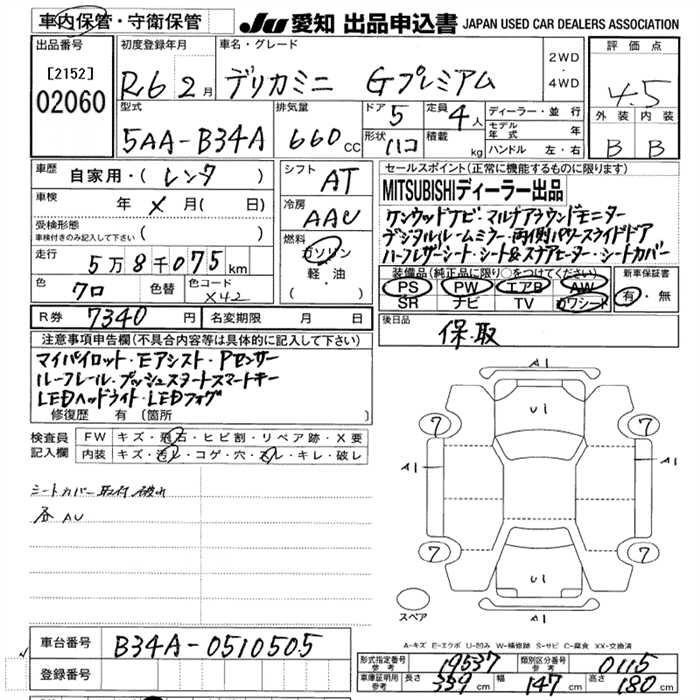 車内保管・守衛保管
JU 愛知 出品申込書 JAPAN USED CAR DEALERS ASSOCIATION
出品番号
[2152]
02060
初度登録年月
R.6 2月
車名・グレード
デリカミニ Gプレミアム
2WD
・
4WD
評価点
4.5
外装 内装
B B
型式
5AA-B34A
排気量
660cc
ドア
5
形状
ハコ
定員
4人
積載
kg
ディーラー・並行
モデル年式 年
ハンドル 左・右
車歴
自家用・( レンタ )
車検 年 × 月( 日)
受検形態
車検付きのみ記入して下さい ( )
走行 5万8千075km
色 クロ 色替 色コード X42
シフト
AT
冷房
AAC
燃料
ガソリン
軽・油
( )
セールスポイント(正常に機能するものに限ります)
MITSUBISHIディーラー出品
ケンウッドナビ・マルチアラウンドモニター
デジタルルームミラー・両側パワースライドドア
ハーフレザーシート・シート&ステアヒーター・シートカバー
装備品(純正品に限り○をつけてください)
PS PW エアB AW
SR ナビ TV カワシート
新車保証書
有・無
R券 7340円 名変期限 月 日
後日品 保・取
注意事項申告欄(不具合内容等は具体的に記入して下さい)
マイパイロット・Eアシスト・Pセンサー
ルーフレール・プッシュスタートスマートキー
LEDヘッドライト・LEDフォグ
修復歴 有(箇所 )
検査員記入欄
FW キズ・飛石・ヒビ割・リペア跡・X要
内装 キズ・汚レ・コゲ・穴・スレ・キレ・破レ
シートカバー取付 破れ
各 AU
A1
U1
7 7
A1 A1
7 7
U1
A1
スペア
A-キズ E-エクボ U-凹み W-補修跡 S-サビ C-腐食 XX-交換済
車台番号 B34A-0510505
登録番号
形式指定番号 参考 19537 類別区分番号 参考 0115
車庫証明用 参考 長さ 339cm 幅 147cm 高さ 180cm